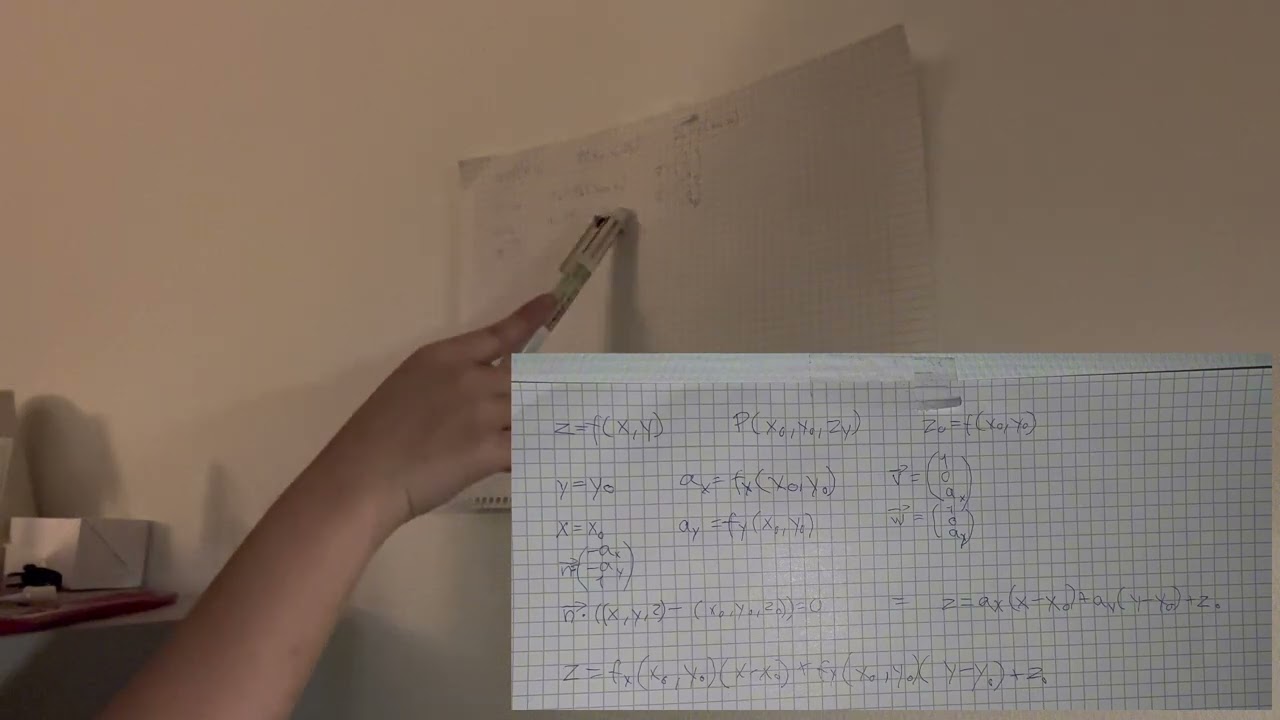 z=f(x,y) P(x₀,y₀,z_y) z₀=f(x₀,y₀)
y=y₀ aₓ=fₓ(x₀,y₀) v⃗=(1 0 aₓ)
x=x₀ a_y=f_y(x₀,y₀) w⃗=
n⃗=(-aₓ -a_y 1)
n⃗·((x,y,z)-(x₀,y₀,z₀))=0 = z=aₓ(x-x₀)+a_y(y-y₀)+z₀
z=fₓ(x₀,y₀)(x-x₀)+f_y(x₀,y₀)(y-y₀)+z₀